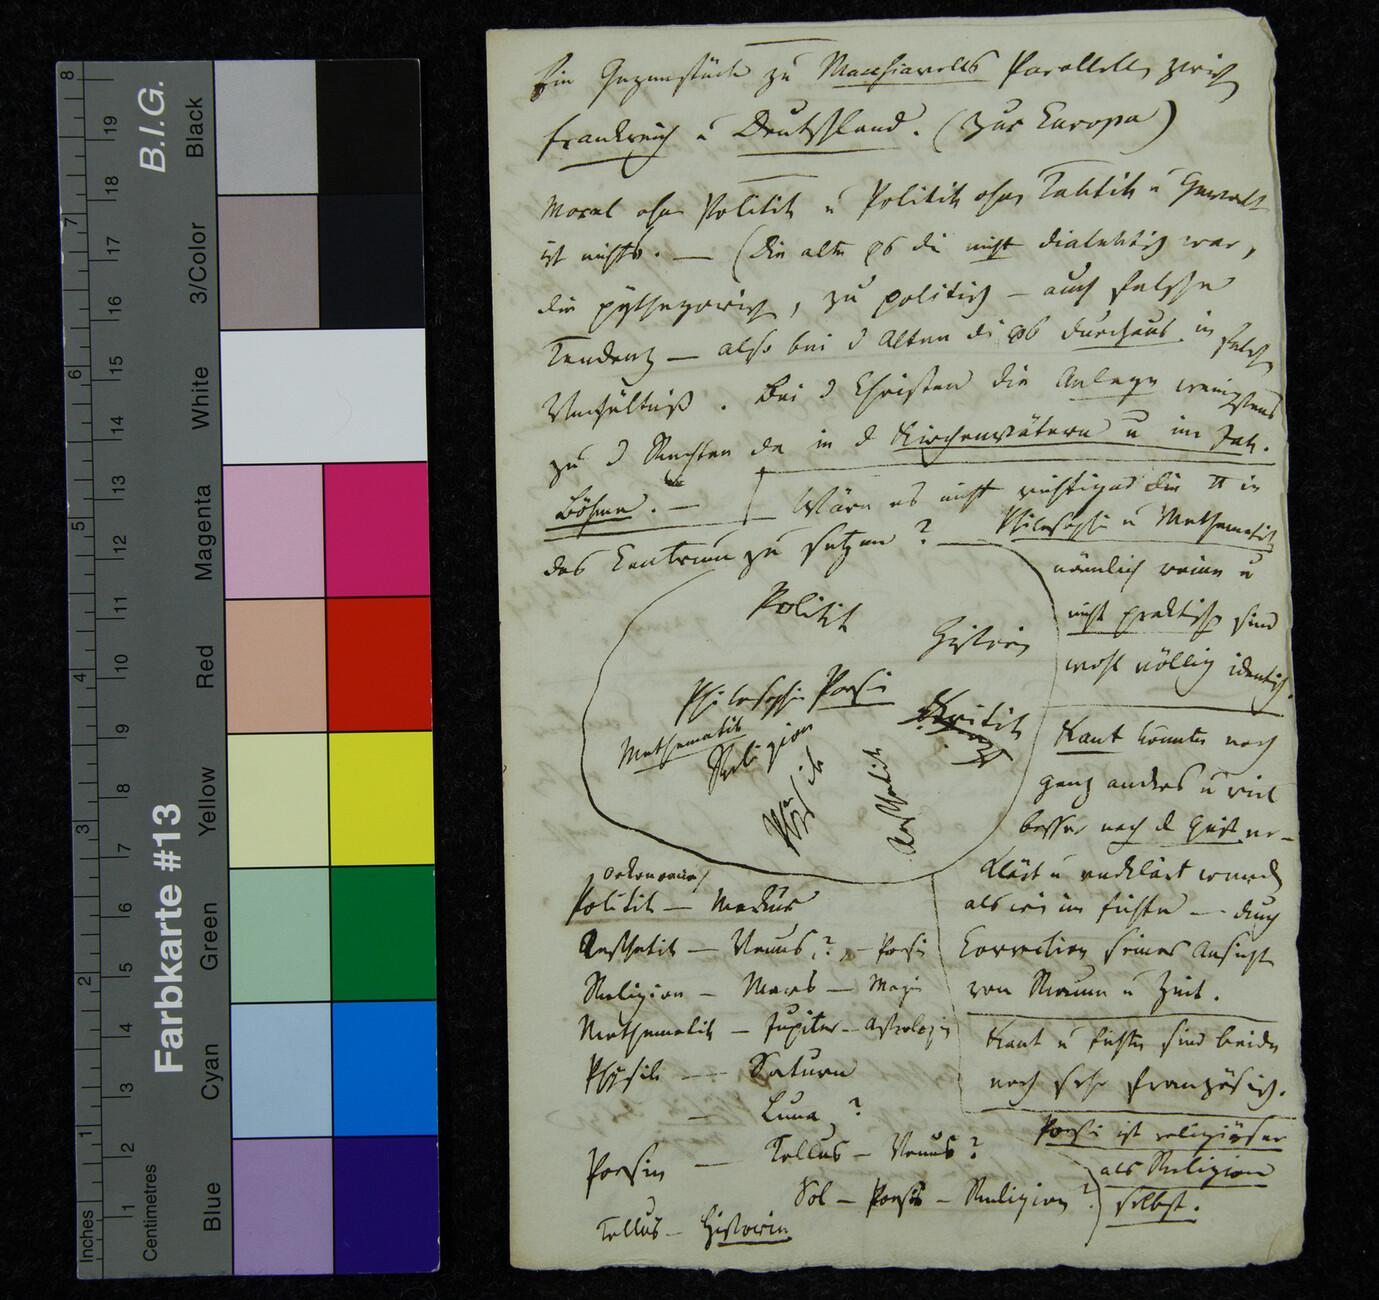 Ein Gegenstück zu Macchiavells Parallele zwisch
Frankreich u Deutschland. (Zur Europa)
Moral ohne Politik u Politik ohne Taktik u Gewalt
ist nichts. — (Die alte φσ die nicht dialektisch war,
die pythagorisch, zu politisch — auch falsche
Tendenz — also bei d Alten die φσ durchaus in falsch
Verhältniß. Bei d Christen die Anlage wenigstens
zu d Rechten da in d Kirchenvätern u im Jak.
Böhme. —
— Wäre es nicht richtiger die π in
das Centrum zu setzen? —
Philosophie u Mathematik
nämlich reine u
nicht praktische sind
wohl völlig identisch.
Kant könnte noch
ganz anders u viel
besser nach d Geist er-
klärt u verklärt werden
als wie im Fichte — durch
Correction seiner Ansicht
von Raum u Zeit.
Kant u Fichte sind beide
noch sehr französisch.
Poesie ist religiöser
als Religion
selbst.
Politik
Historie
Philosophie Poesie
Kritik
Mathematik
Religion
Physik
Aesthetik
(oekonomie)
Politik — Merkur
Aesthetik — Venus? — Poesie
Religion — Mars — Magie
Mathematik — Jupiter — Astrologie
Physik — Saturn
— Luna?
Poesie — Tellus — Venus?
Sol — Poesie — Religion?
Tellus — Historie
8
7
6
5
4
3
2
1
Inches
19
18
17
16
15
14
13
12
11
10
9
8
7
6
5
4
3
2
1
Centimetres
B.I.G.
Farbkarte #13
Black
3/Color
White
Magenta
Red
Yellow
Green
Cyan
Blue